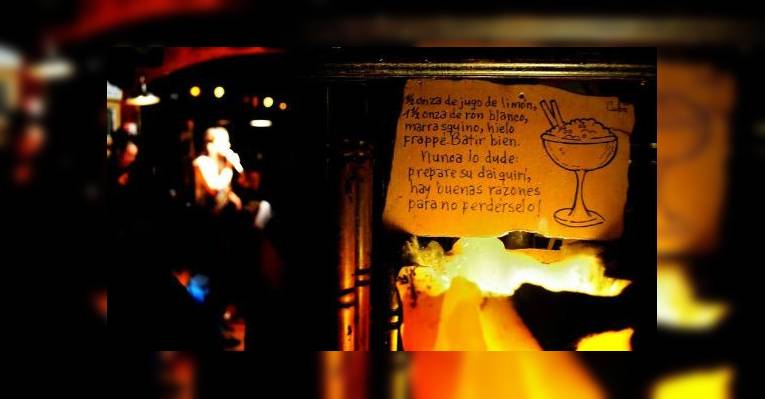 ½ onza de jugo de limón,
1½ onza de ron blanco,
marrasquino, hielo
frappé. Batir bien.
Nunca lo dude:
prepare su daiquirí,
hay buenas razones
para no perdérselo!